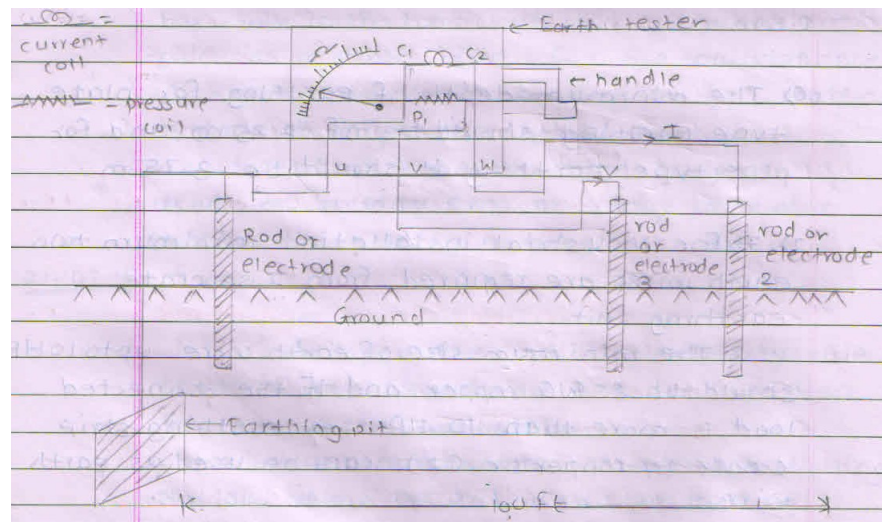 = =
current
coil
= pressure
coil
← Earth tester
C1
C2
← handle
P1
I
U
V
W
V
Rod or
electrode
rod
or
electrode
3
rod or
electrode
2
Ground
← Earthing pit
100ft